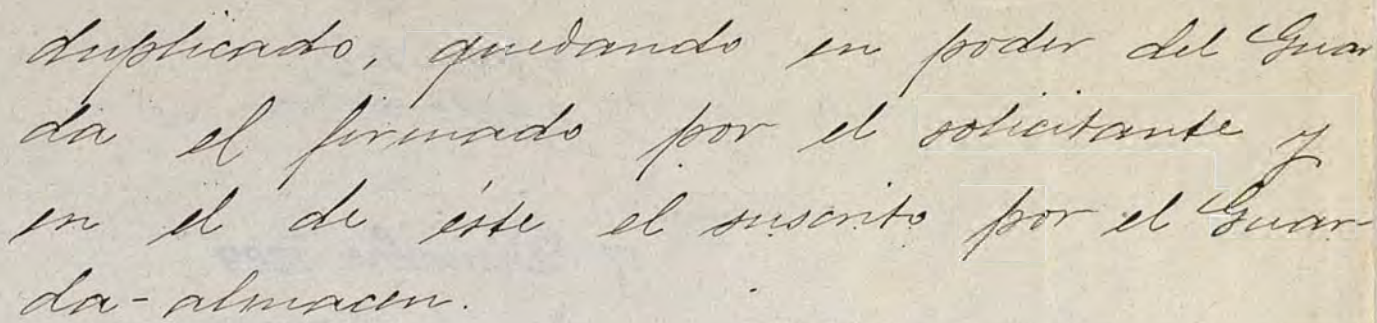 duplicado, quedando en poder del Guar
da el firmado por el solicitante y
en el de éste el suscrito por el Guar-
da-almacen.